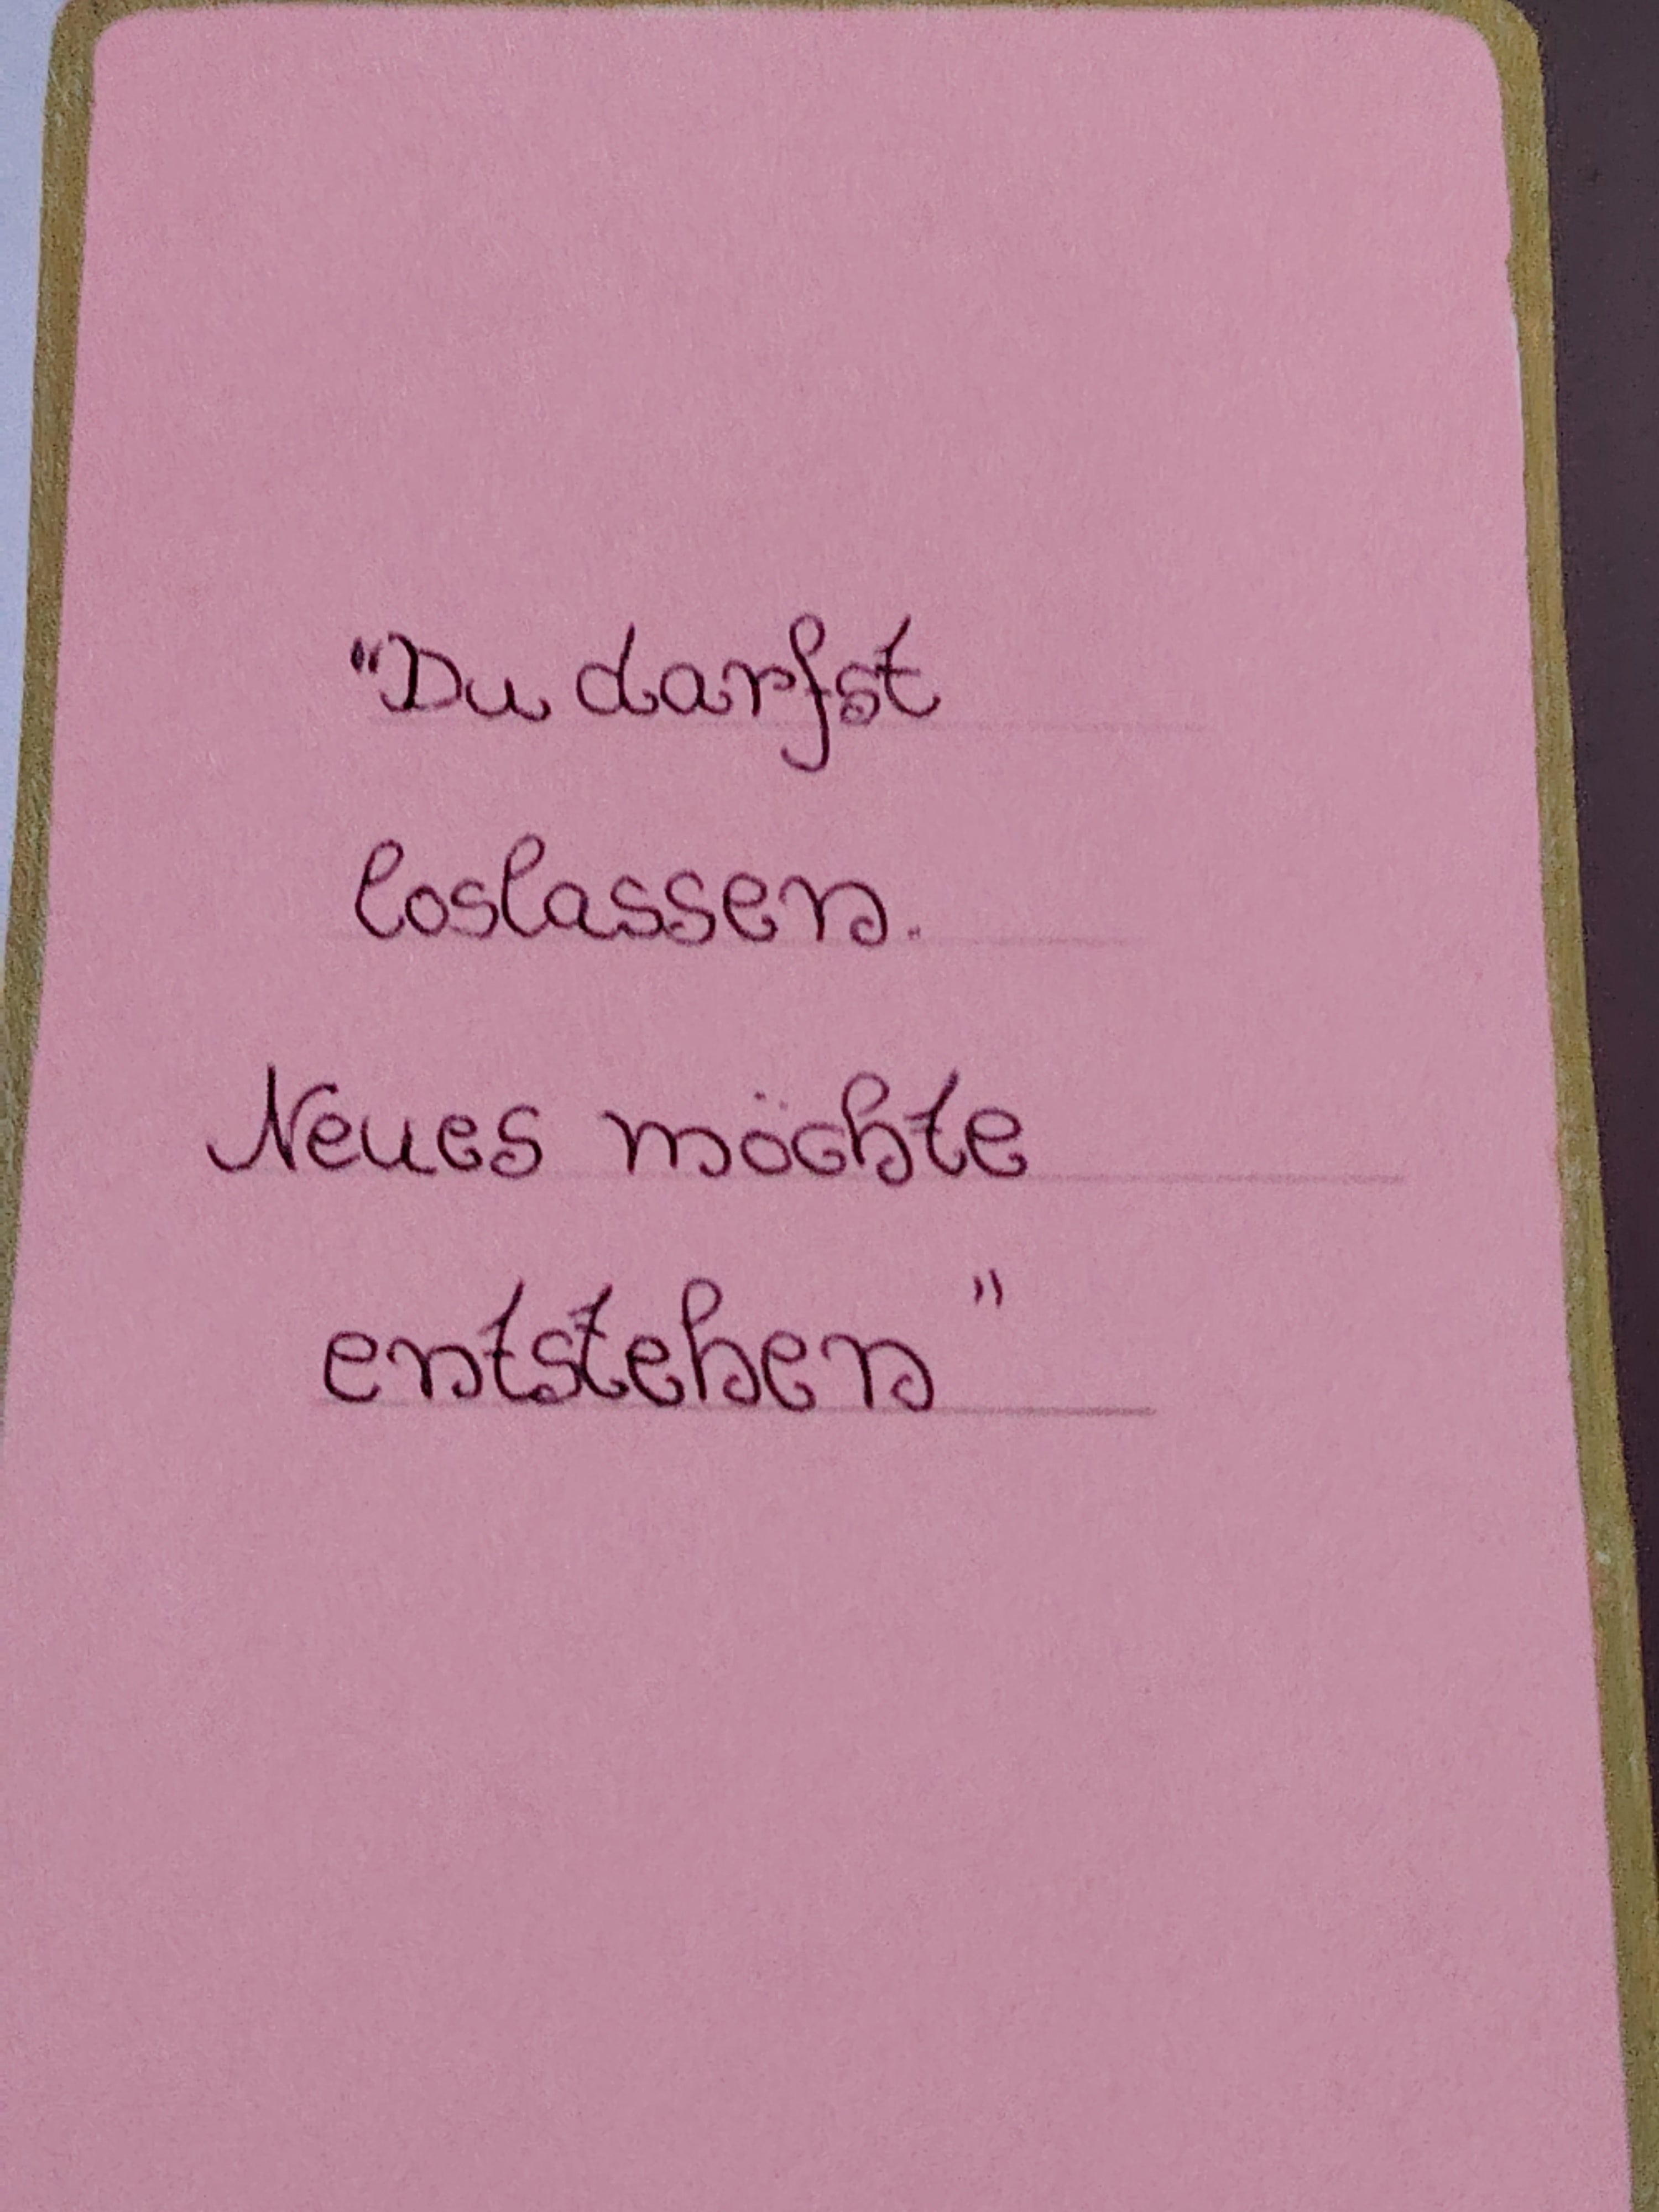 "Du darfst
loslassen.
Neues möchte
entstehen"